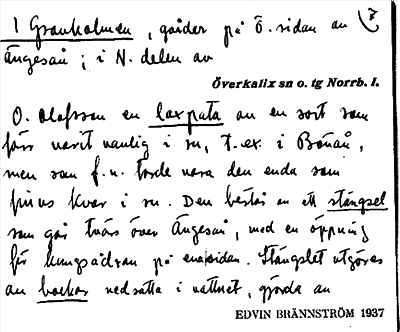 1 Granholmen, gårdar på Ö. sidan av
Ängesån; i N. delen av
Överkalix sn o. tg Norrb. l.
O. Olofsson en laxpata av en sort som
förr varit vanlig i sn, t.ex. i Bönån,
men som f.n. torde vara den enda som
finns kvar i sn. Den består av ett stängsel
som går tvärs över Ängesån, med en öppning
för kungsådran på ena sidan. Stängslet utgöres
av bockar nedsatta i vattnet, gjorda av
EDVIN BRÄNNSTRÖM 1937